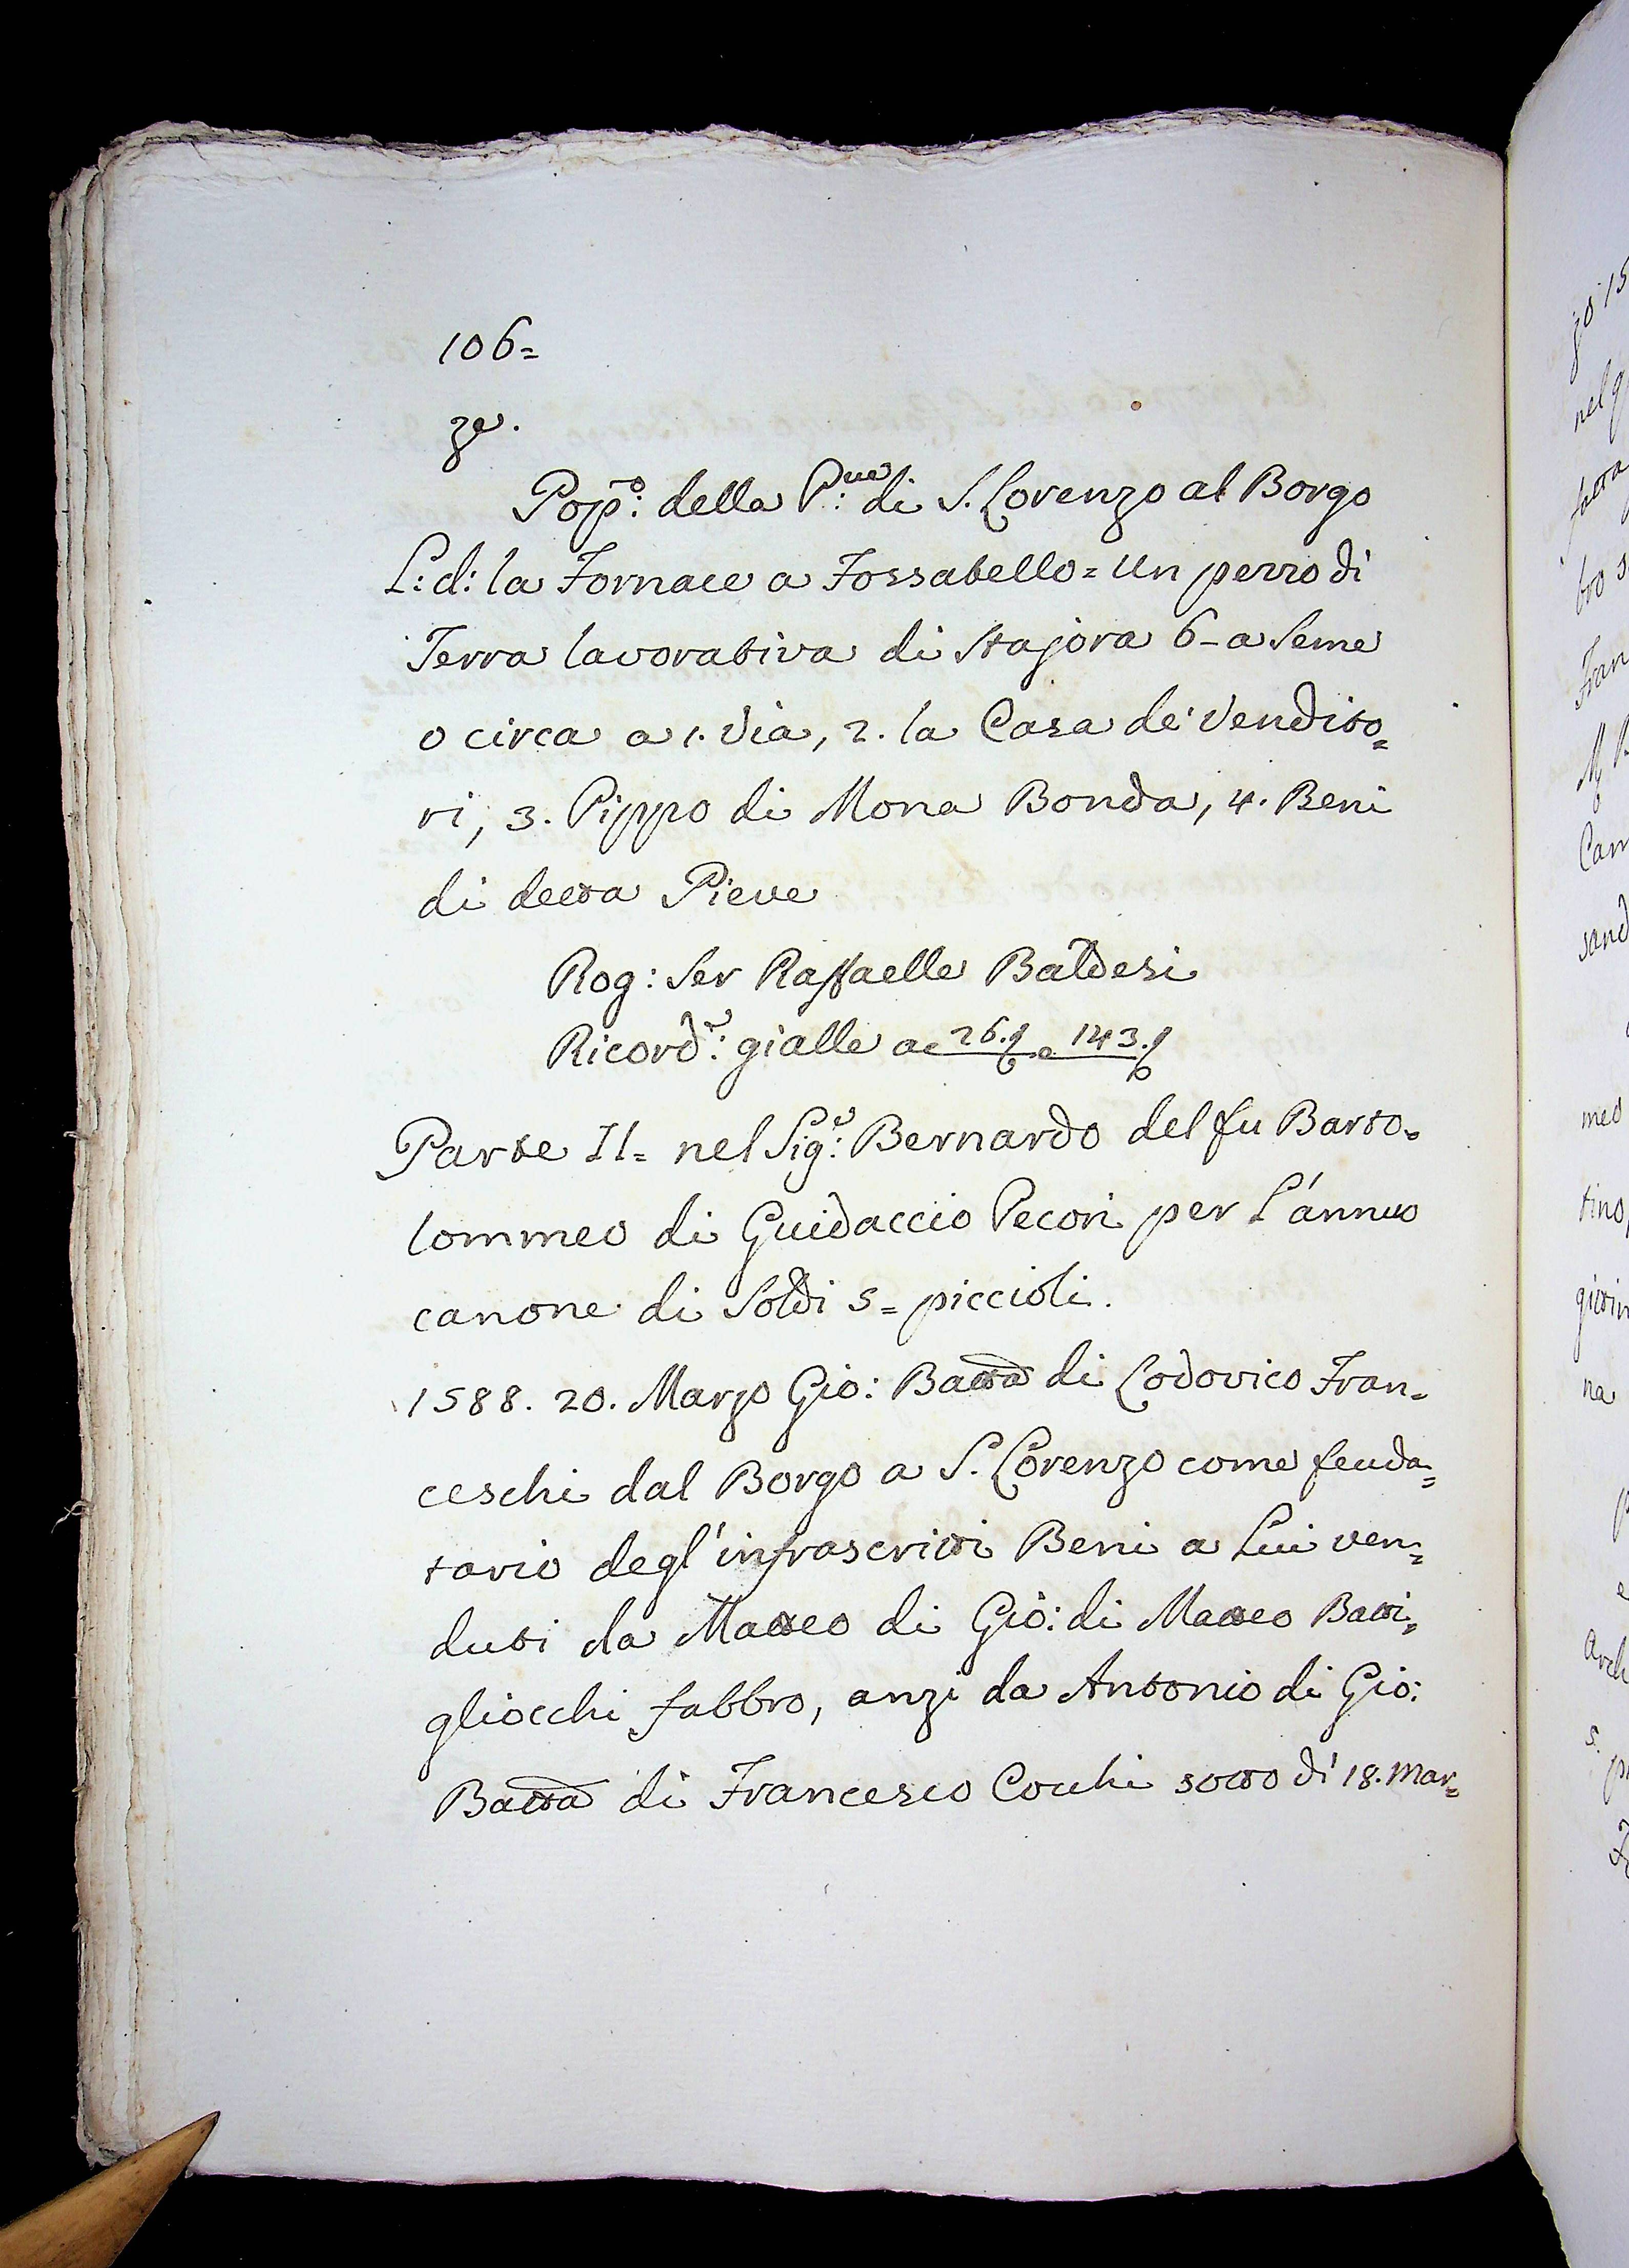 106=
ze.
Pop:o della P:ve di S. Lorenzo al Borgo
L: d: la Fornace a Fossatello = Un pezzo di
Terra lavorativa di Stajora 6 - a Seme
o circa a 1. Via, 2. la Casa de' Vendito=
ri, 3. Pippo di Mona Bonda, 4. Beni
di detta Pieve
Rog: Ser Raffaelle Baldesi
Ricord:e gialle a c 26. e 143.
Parte II = nel Sig:e Bernardo del fu Barto=
lommeo di Guidaccio Pecori per L'annuo
canone di Soldi 5 = piccioli.
1588. 20. Marzo Gio: Batta di Lodovico Fran=
ceschi dal Borgo a S. Lorenzo come feuda=
tario degl'infrascritti Beni a Lui ven=
duti da Matteo di Gio: di Matteo Batti=
gliocchi fabbro, anzi da Antonio di Gio:
Batta di Francesco Cocchi sotto dì 18. Mar=